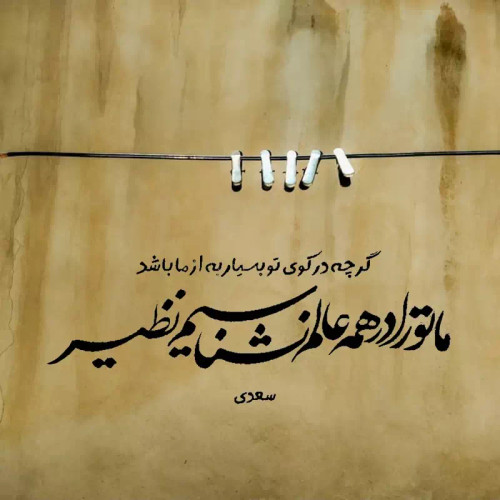 گرچه در کوی تو بسیار به از ما باشد
ما تو را در همه عالم نشناسیم نظیر
سعدی